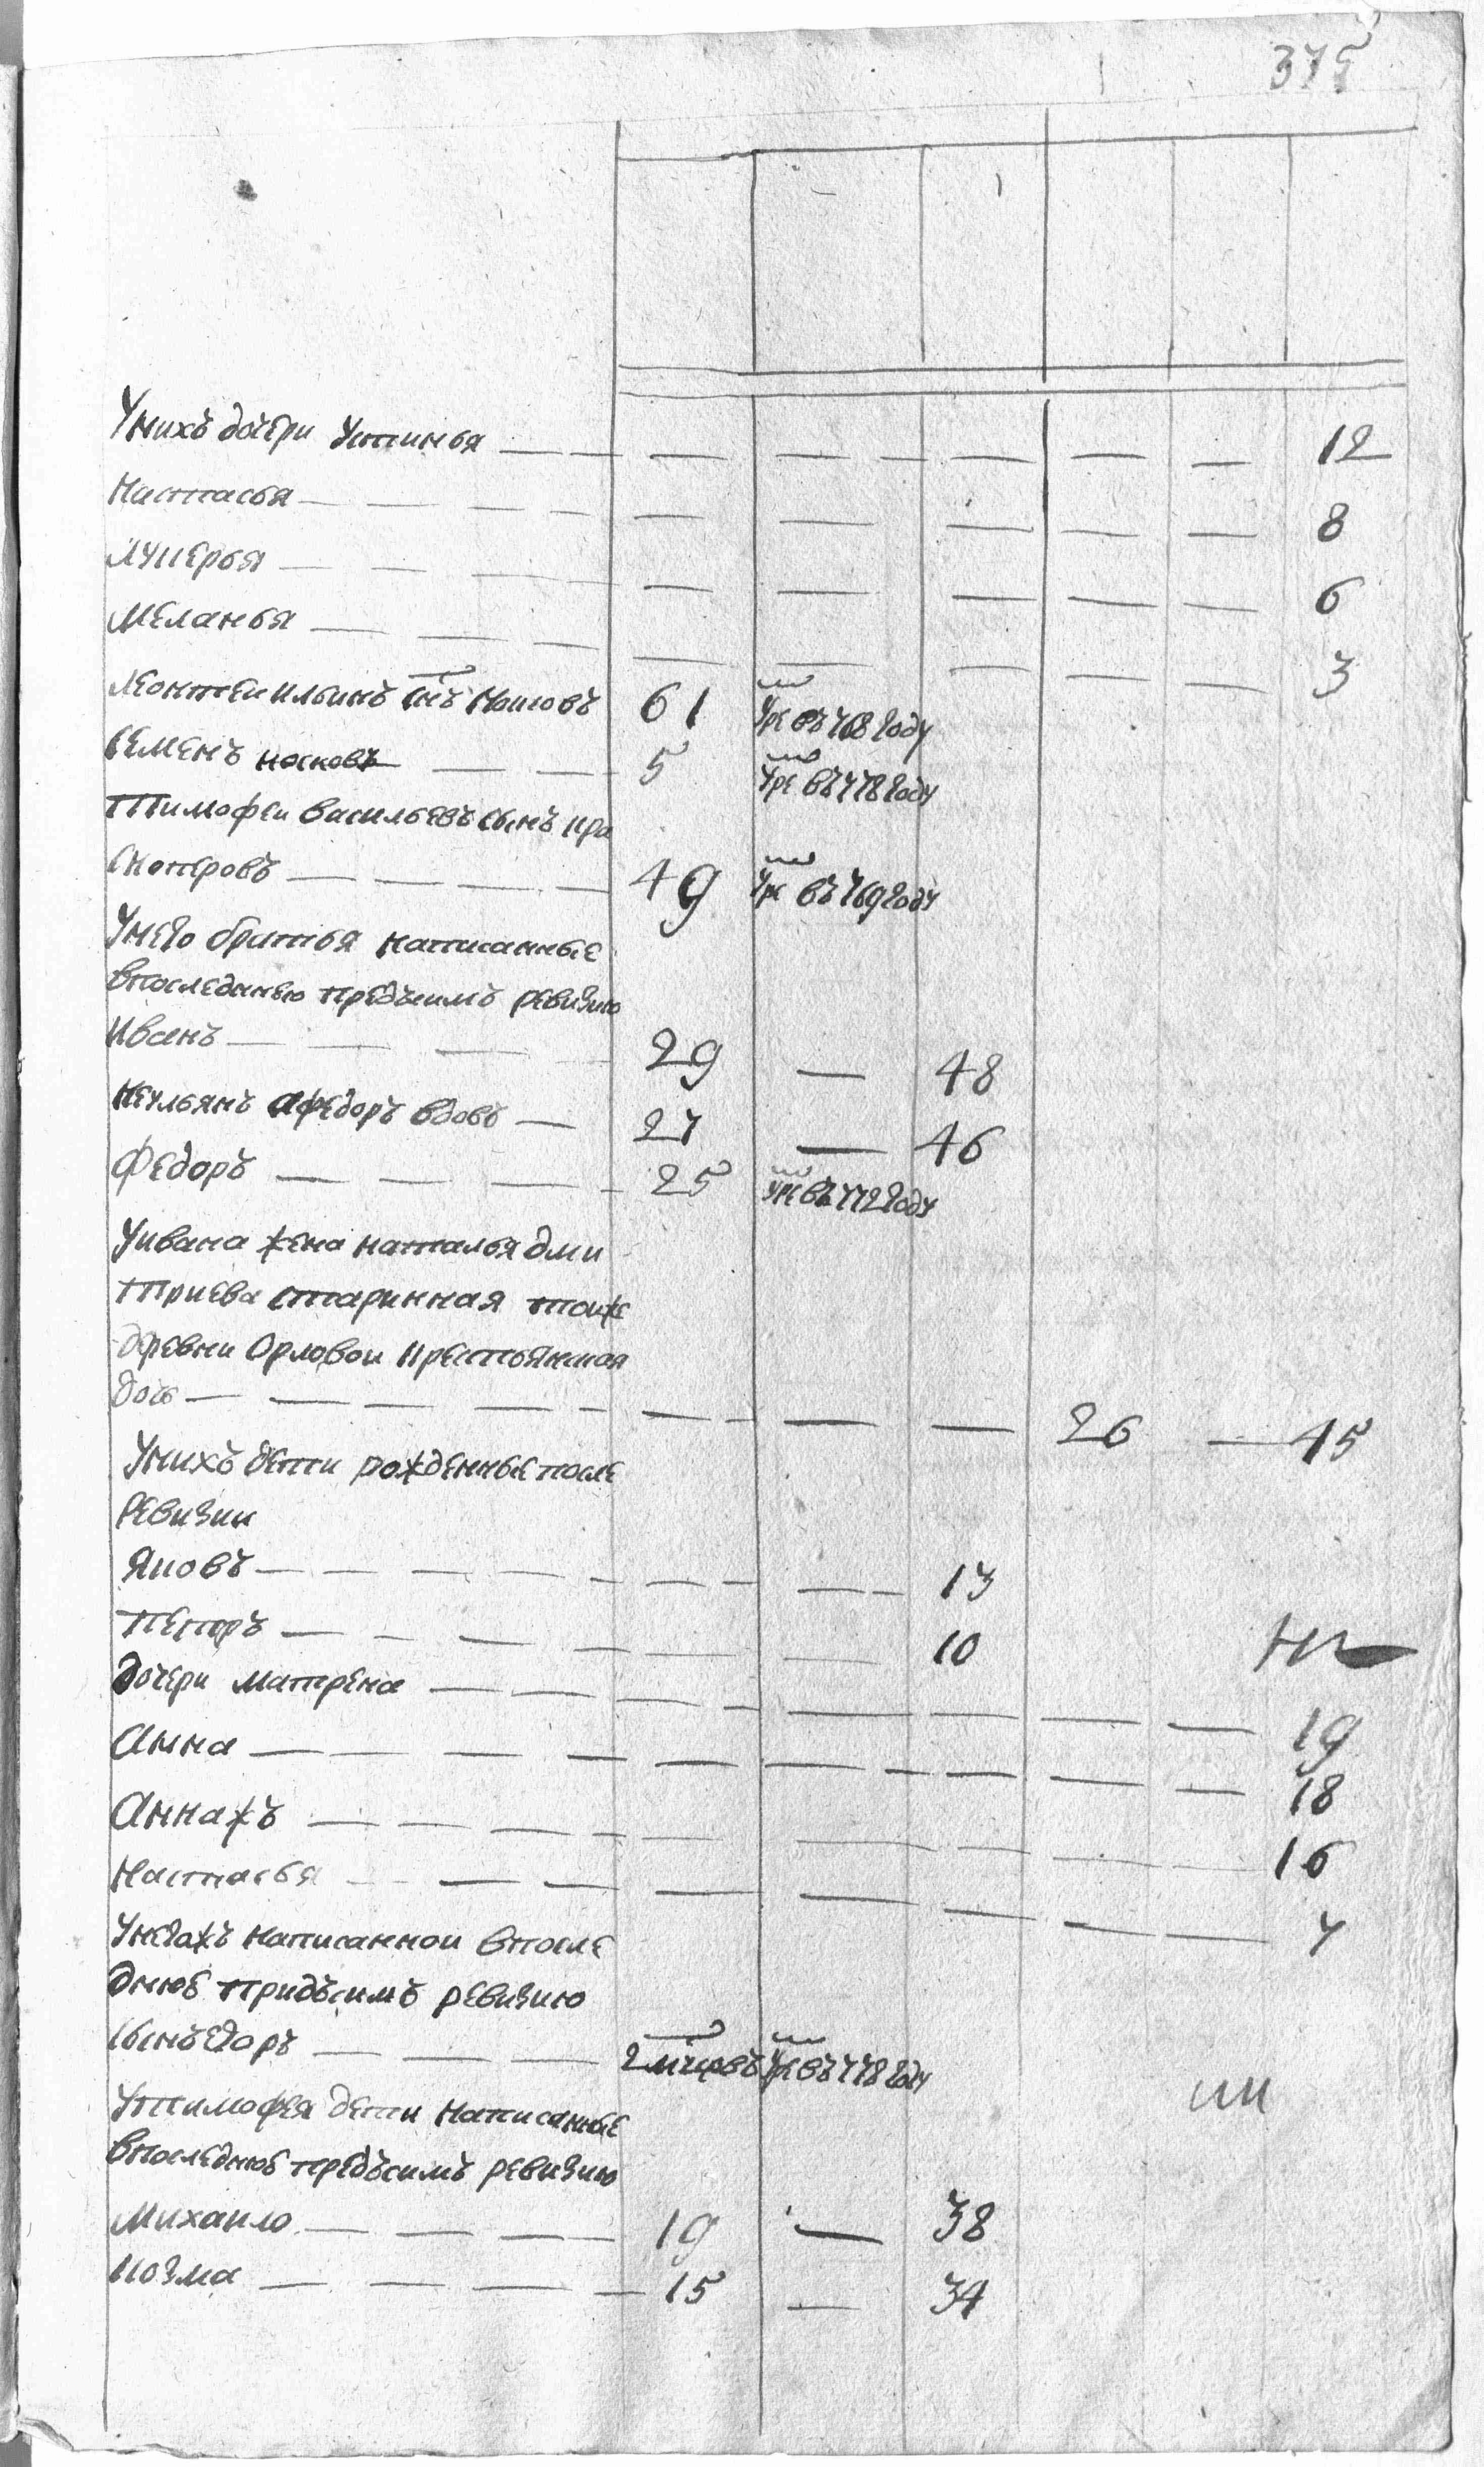 375
Унихъ дочери Устинья 12
Настасья 8
Лукерья 6
Меланья 3
Леонтеи Ильинъ снъ Носковъ 61 умре въ 768 году
Семенъ носковъ 5 умре въ 778 году
Тимофеи васильевъ сынъ кра
49 умре въ 769 году
Унего братья написанные
впоследнею предъсимъ ревизию
Иванъ 29 — 48
Федоръ вдовъ 27 — 46
Федоръ 25 умре въ 772 году
Уивана жена наталья дми
триева старинная тоиже
древни Орловои крестьянская
дочь 26 — 45
Унихъ дети рожденные после
ревизии
Яковъ 13
Петръ 10
дочери матрена 19
Анна 18
Аннажъ 16
Настасья 7
Унегожъ написаннои впосле
днюю предъсимъ ревизию
сынъ 2 мцовъ умре въ 778 году
Утимофея дети написанные
впоследнюю передъсимъ ревизию
Михаило 19 — 38
Козма 15 — 34